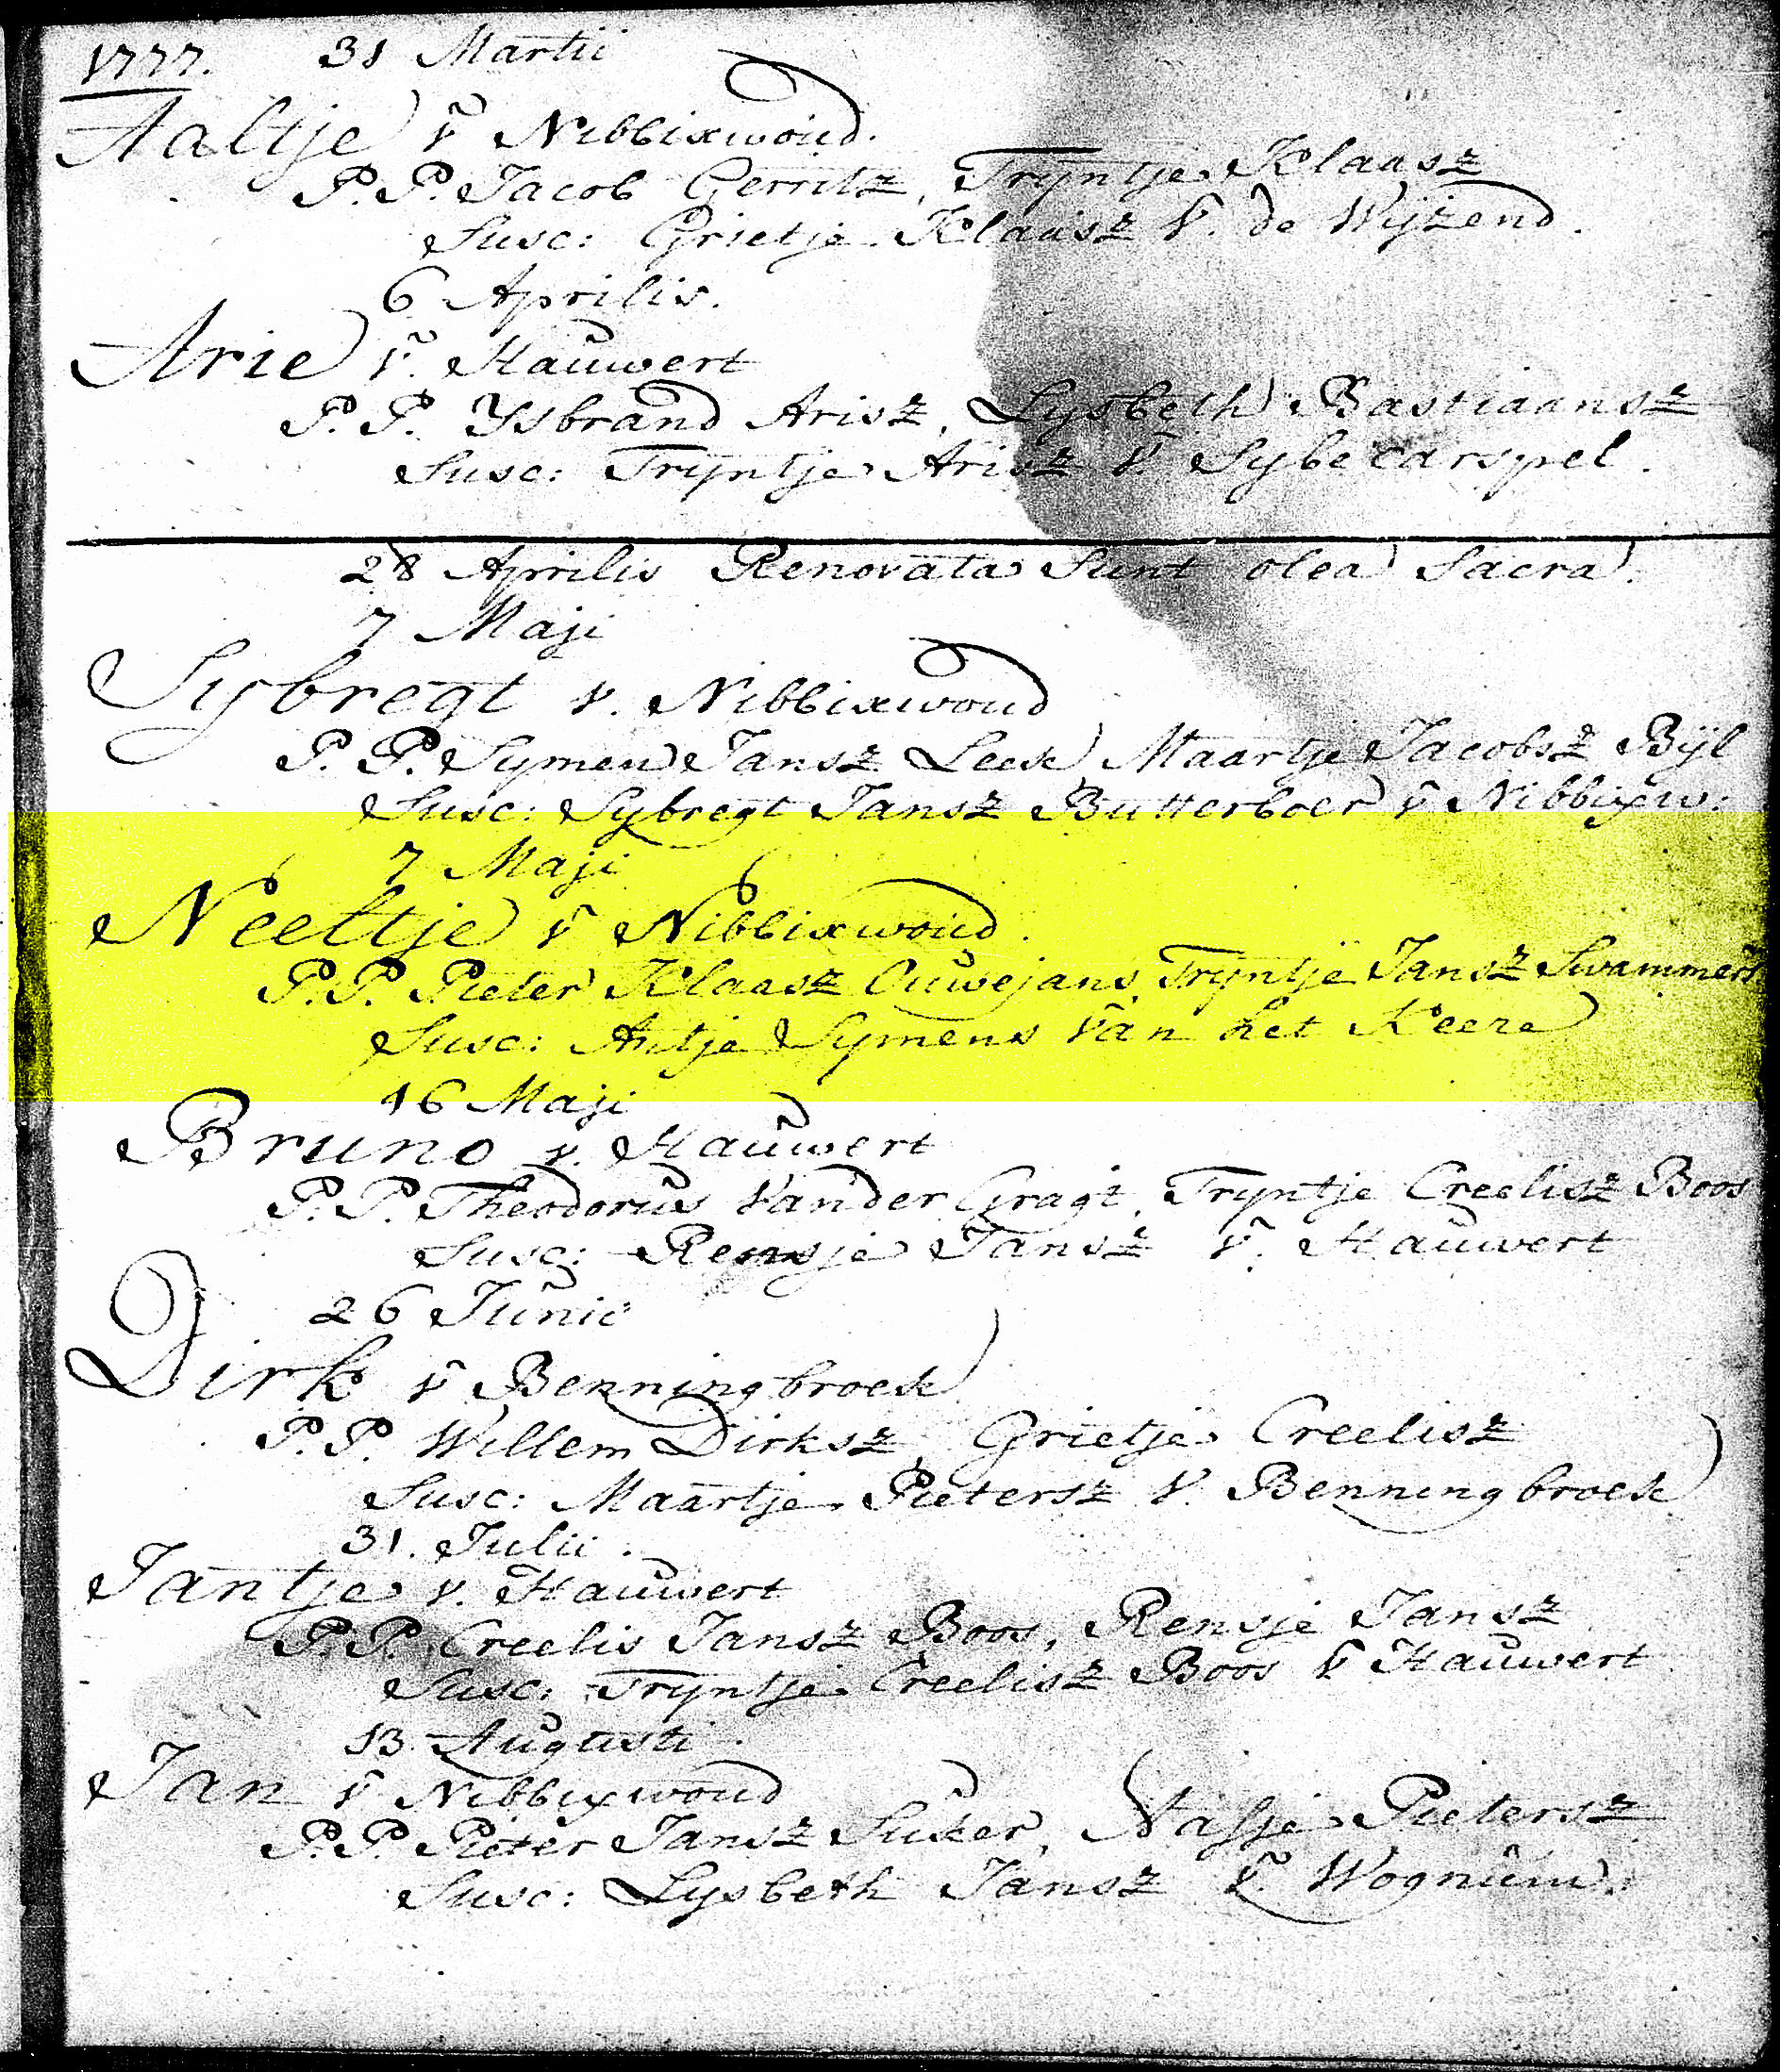 1777. 31 Martii
Aaltje v Nibbixwoud.
P. P. Jacob Gerritz, Trÿntje Klaasz
Susc: Grietje Klaasz V. de Wijzend.
6 Aprilis.
Arie V. Hauwert
P. P. Ysbrand Arisz, Lysbeth Bastiaansz
Susc: Trÿntje Arisz V. Sybecarspel.
28 Aprilis Renovata Sunt olea Sacra.
7 Maji
Sybregt v. Nibbixwoud
P. P. Symen Jansz Leek Maartje Jacobsz Bÿl
Susc: Sybregt Jansz Butterboer v Nibbixw:
7 Maji
Neeltje v Nibbixwoud.
P. P. Pieter Klaasz Ouwejans, Trÿntje Jansz Swammers
Susc: Antje Symens van het Keere
16 Maji
Bruno v. Hauwert
P. P. Theodorus Van der Gragt, Tryntje Creelisz Boos
Susc: Rensje Jansz V. Hauwert
26 Junii
Dirk v Benningbroek
P. P. Willem Dirksz, Grietje Creelisz
Susc: Maartje Pietersz V. Benningbroek
31. Julii.
Jantje v. Hauwert
P. P. Creelis Jansz Boos, Rensje Jansz
Susc: Tryntje Creelisz Boos V Hauwert
13 Augusti.
Jan v Nibbixwoud
P. P. Pieter Jansz Suker, Pietersz
Susc: Lysbeth Jansz V. Wognum.